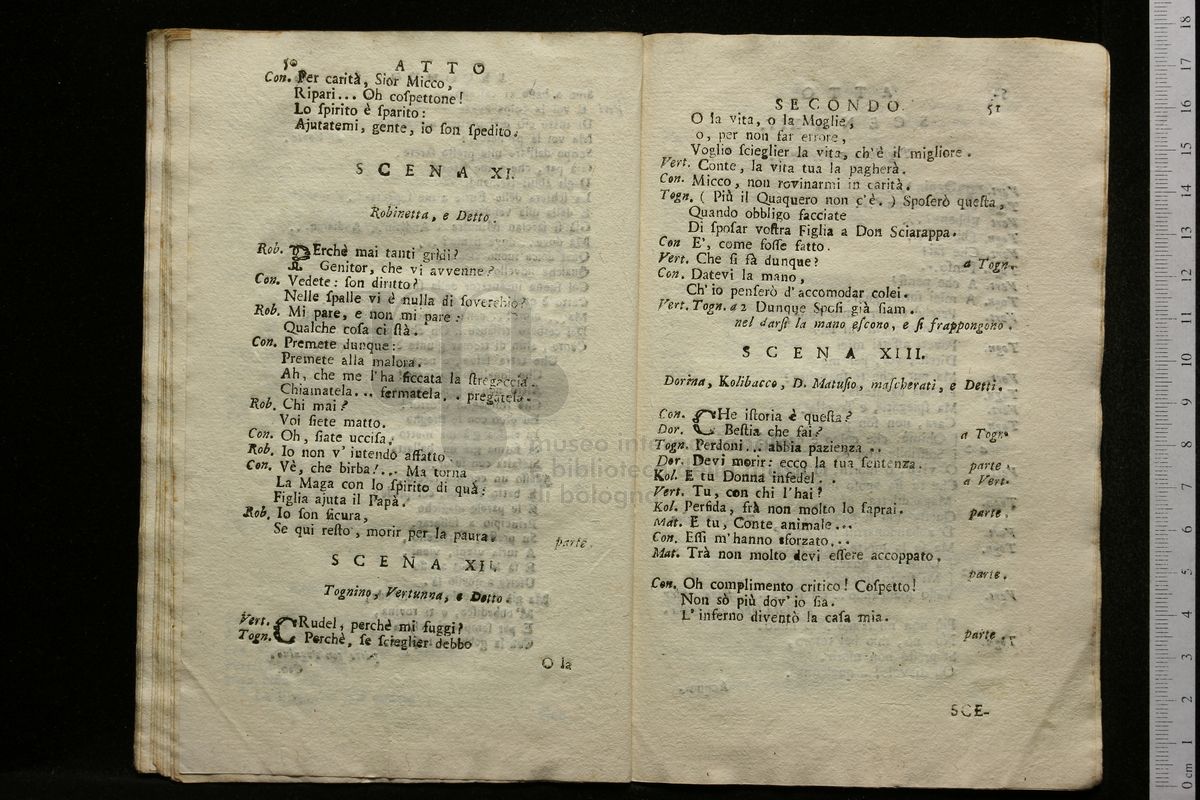 50 ATTO
Con. Per carità, Sior Micco,
Ripari... Oh coſpettone!
Lo ſpirito è ſparito:
Ajutatemi, gente, io ſon ſpedito.
SCENA XI.
Robinetta, e Detto.
Rob. PErchè mai tanti gridi?
Genitor, che vi avvenne?
Con. Vedete: ſon diritto?
Nelle ſpalle vi è nulla di ſoverchio?
Rob. Mi pare, e non mi pare:
Qualche coſa ci ſtà.
Con. Premete dunque:
Premete alla malora.
Ah, che me l'ha ficcata la ſtregaccia.
Chiamatela... fermatela. . pregatela.
Rob. Chi mai?
Voi ſiete matto.
Con. Oh, ſiate ucciſa.
Rob. Io non v'intendo affatto
Con. Vè, che birba!... Ma torna
La Maga con lo ſpirito di quà:
Figlia ajuta il Papà.
Rob. Io ſon ſicura,
Se qui reſto, morir per la paura. parte.
SCENA XII.
Tognino, Vertunna, e Detto
Vert. CRudel, perchè mi fuggi?
Togn. Perchè, ſe ſcieglier debbo
O la
SECONDO. 51
O la vita, o la Moglie,
o, per non far errore,
Voglio ſcieglier la vita, ch'è il migliore.
Vert. Conte, la vita tua la pagherà.
Con. Micco, non rovinarmi in carità.
Togn. ( Più il Quaquero non c'è. ) Spoſerò queſta,
Quando obbligo facciate
Di ſpoſar voſtra Figlia a Don Sciarappa.
Con E', come foſſe fatto.
Vert. Che ſi fà dunque? a Togn.
Con. Datevi la mano,
Ch'io penſerò d'accomodar colei.
Vert. Togn. a 2 Dunque Spoſi già ſiam.
nel darſi la mano eſcono, e ſi frappongono.
SCENA XIII.
Dorina, Kolibacco, D. Matuſio, maſcherati, e Detti.
Con. CHe iſtoria è queſta?
Dor. Beſtia che fai? a Togn.
Togn. Perdoni... abbia pazienza ..
Dor. Devi morir: ecco la tua ſentenza. parte.
Kol. E tu Donna infedel. . a Vert.
Vert. Tu, con chi l'hai?
Kol. Perfida, frà non molto lo ſaprai. parte.
Mat. E tu, Conte animale...
Con. Eſſi m'hanno sforzato...
Mat. Trà non molto devi eſſere accoppato.
parte.
Con. Oh complimento critico! Coſpetto!
Non sò più dov'io ſia.
L'inferno diventò la caſa mia.
parte.
SCE-
museo inte
biblioteca
di bologna
18
17
16
15
14
13
12
11
10
9
8
7
6
5
4
3
2
1
0 cm